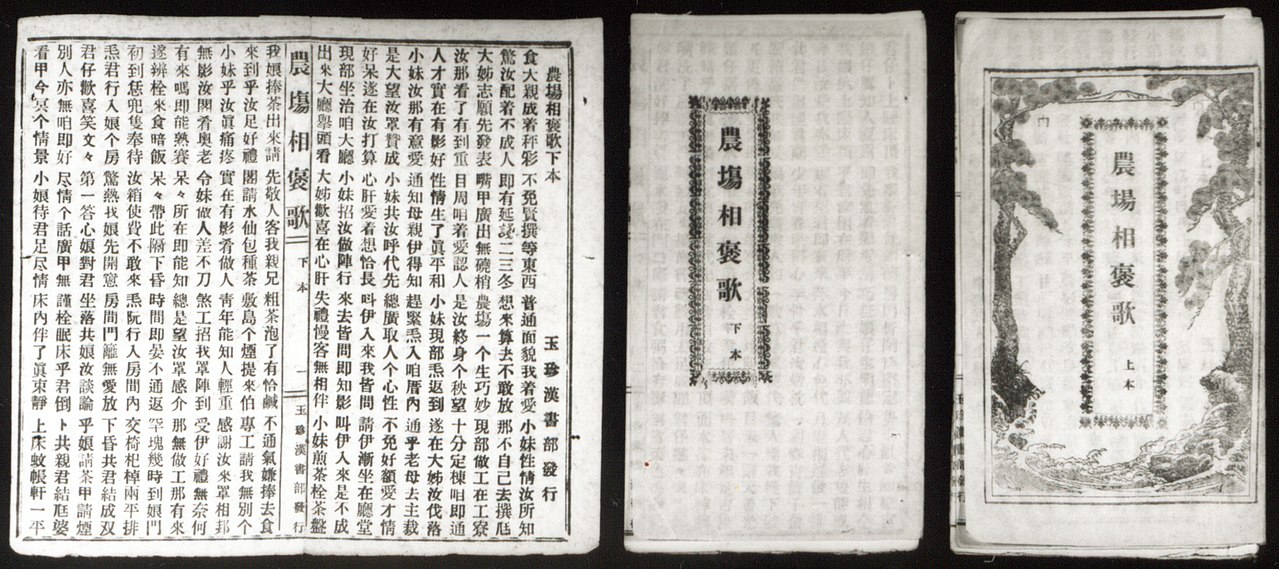 農場相褒歌下本 玉珍漢書部發行
食大親成着秤彩 不免賢撰等東西 普通面貌我着愛 小妹性情汝所知
驚汝配着不成人 即有延諓二三冬 想來算去不敢放 那不自己去撰尫
大姊志願先發表 嘴甲廣出無磽梢 農塲一个生巧妙 現部做工在工寮
汝那看了有到重 目周咱着愛認人 是汝終身个秧望 十分定棟咱即通
人才實在有影好 性情生了眞平和 小妹現部𤆬返到 遂在大姊汝伐落
小妹汝那有意愛 通知母親伊得知 趕緊𤆬入咱厝內 通乎老母去主裁
是大望汝罩贊成 小妹共汝呼代先 總廣取人个心性 不免好額愛才情
好呆遂在汝打算 心肝愛着想恰長 叫伊入來我皆問 請伊漸坐在廳堂
現部坐治咱大廳 小妹招汝做陣行 來去皆問即知影 叫伊入來是不成
出來大廳舉頭看 大姊歡喜在心肝 失禮慢客無相伴 小妹煎茶栓茶盤
農塲相褒歌 下本 一 玉珍漢書部發行
我娘捧茶出來請 先敬人客我親兄 粗茶泡了有恰鹹 不通氣嫌捧去食
來到乎汝足好禮 閣請水仙包種茶 敷島个煙提來伯 專工請我無別个
小妹乎汝眞痛疼 實在有影肴做人 靑年能知人輕重 感謝汝來罩相邦
無影汝閣肴奧老 令妹做人差不刀 煞工招我罩陣到 受伊好禮無奈何
有來嗎即能熟賽 呆々所在即能知 總是望汝罩感介 那無做工那有來
遂辨栓來食暗飯 呆々帶此隔下昏 時間即晏不通返 罕塊幾時到娘門
初到恁兜隻奉待 汝箱使費不敢來 𤆬阮行入房間內 交椅杞棹兩平排
𤆬君行入娘个房 驚熱我娘先開窓 房間門離無愛放 下昏共君結成双
君仔歡喜笑文々 第一答心娘對君 坐落共娘汝談論 乎娘請茶甲請煙
別人亦無咱即好 尽情个話廣甲無 謹栓眠床乎君倒 卜共親君結尫婆
看甲今冥个情景 小娘待君足尽情 床內伴了眞束靜 上床蚊帳軒一平
農塲相褒歌 下本
農場相褒歌 上本